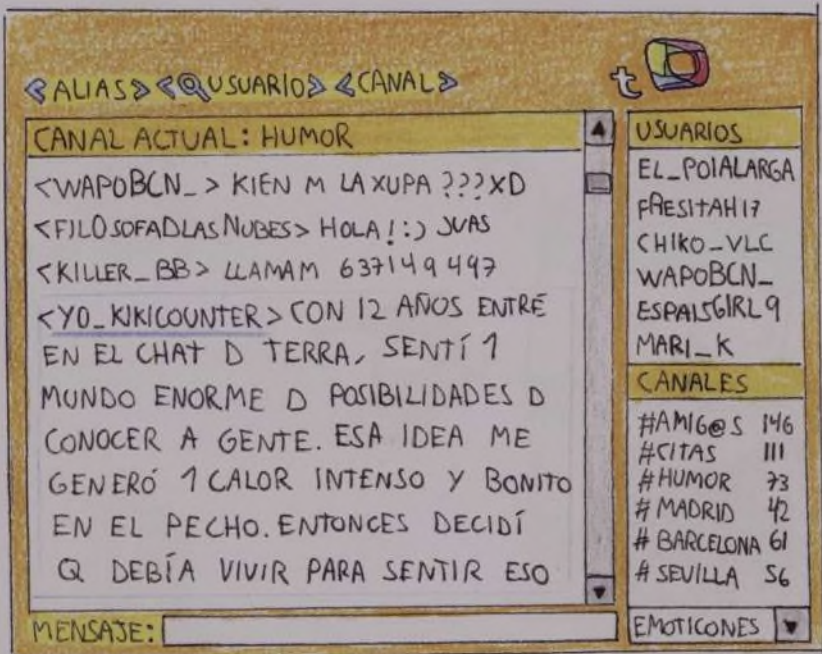 <ALIAS> <USUARIO> <CANAL>
t
CANAL ACTUAL: HUMOR
<WAPOBCN_> KIEN M LA XUPA ???XD
<FILOSOFADLASNUBES> HOLA!:) JUAS
<KILLER_BB> LLAMAM 637149497
<YO_KIKICOUNTER> CON 12 AÑOS ENTRÉ
EN EL CHAT D TERRA, SENTÍ 1
MUNDO ENORME D POSIBILIDADES D
CONOCER A GENTE. ESA IDEA ME
GENERÓ 1 CALOR INTENSO Y BONITO
EN EL PECHO. ENTONCES DECIDÍ
Q DEBÍA VIVIR PARA SENTIR ESO
MENSAJE:
USUARIOS
EL_POIALARGA
FRESITAH17
CHIKO_VLC
WAPOBCN_
ESPAISGIRL9
MARI_K
CANALES
#AMIG@S 146
#CITAS 111
#HUMOR 73
#MADRID 42
#BARCELONA 61
#SEVILLA 56
EMOTICONES